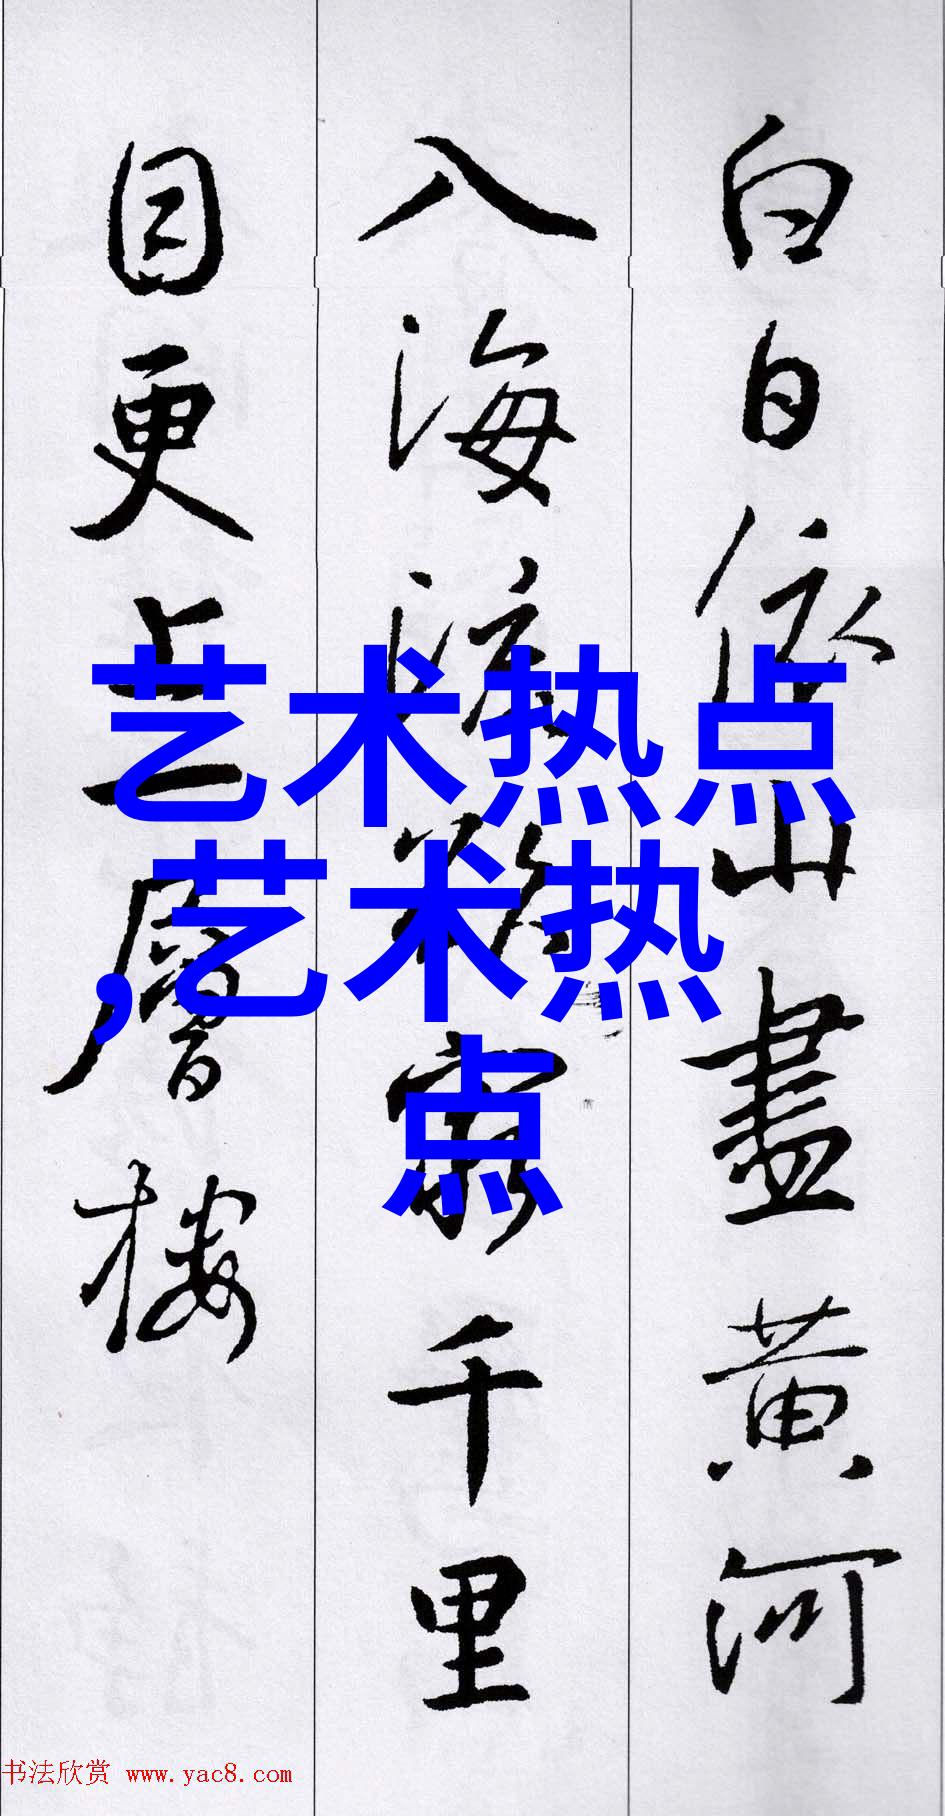 白日依山盡黄河
入海流欲窮千里
目更上一層樓
艺术热点
,艺术热
点
书法欣赏 www.yac8.com